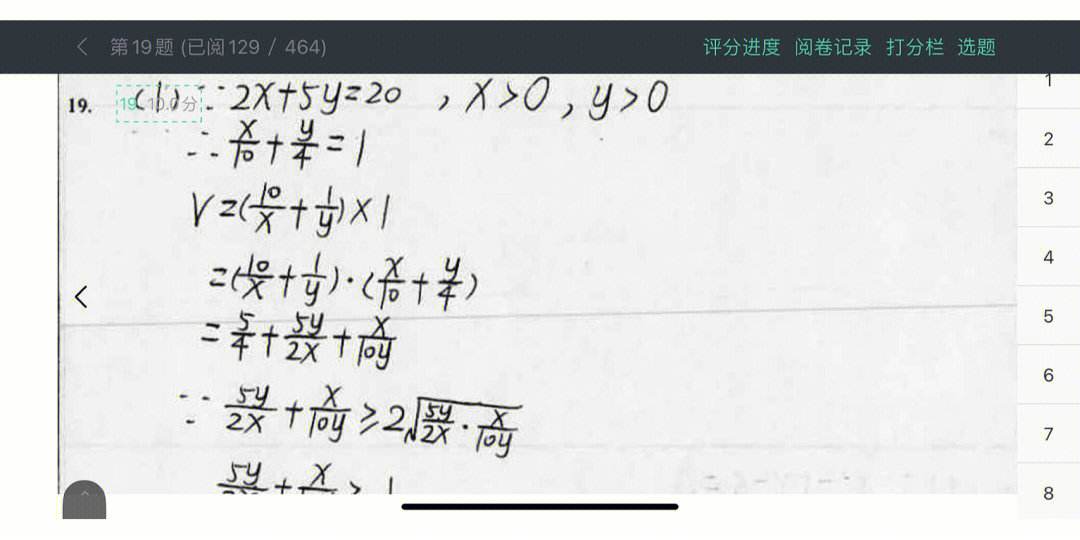 第19题 (已阅129 / 464)
评分进度 阅卷记录 打分栏 选题
19. 19 10.0分 (1) ∵ 2x+5y=20 , x>0 , y>0
∴ x/10 + y/4 = 1
V=(10/x + 1/y)×1
=(10/x + 1/y)·(x/10 + y/4)
= 5/4 + 5y/2x + x/10y
∵ 5y/2x + x/10y ≥ 2√(5y/2x · x/10y)
1
2
3
4
5
6
7
8